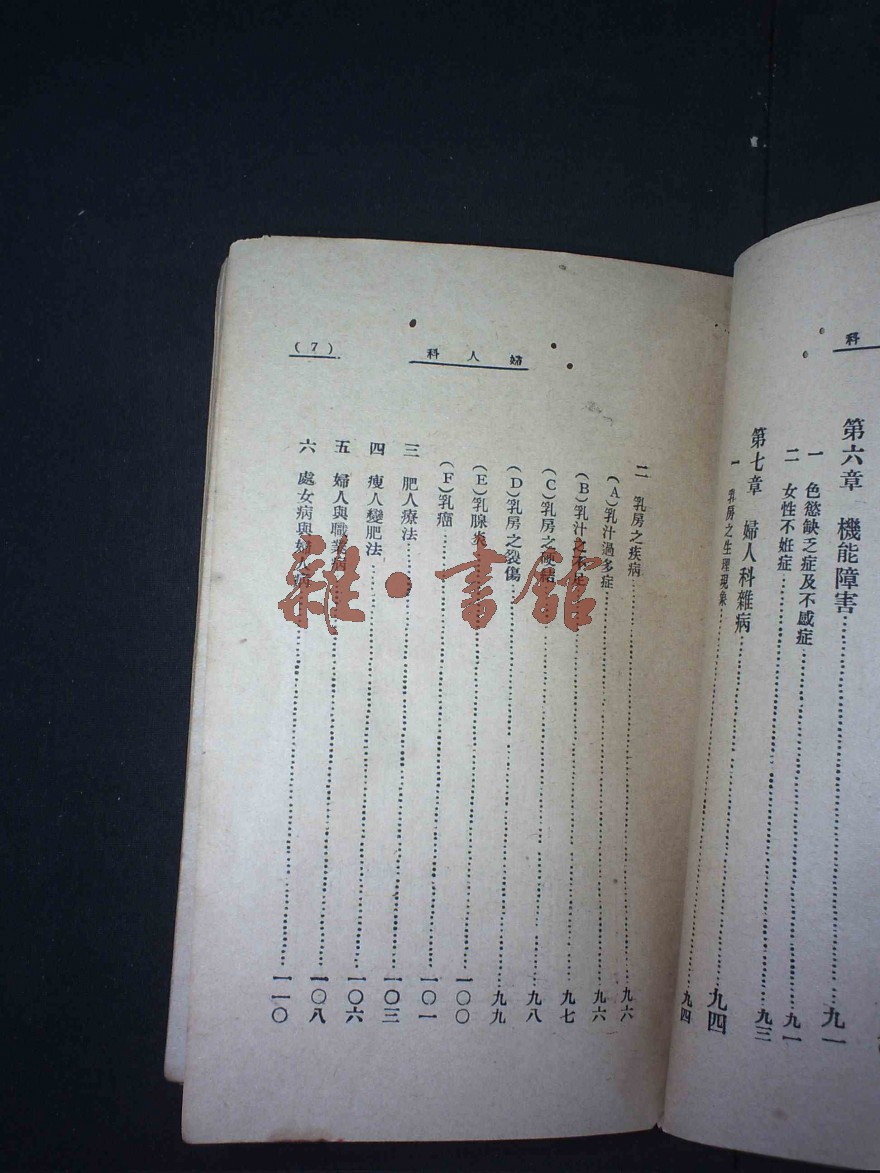 科
第六章 機能障害……九一
一 色慾缺乏症及不感症……九一
二 女性不妊症……九三
第七章 婦人科雜病……九四
一 乳房之生理現象……九四
婦人科
(7)
二 乳房之疾病……九六
(A)乳汁過多症……九六
(B)乳汁之不足……九七
(C)乳房之硬結……九八
(D)乳房之裂傷……九九
(E)乳腺炎……一〇〇
(F)乳癌……一〇一
三 肥人療法……一〇三
四 瘦人變肥法……一〇六
五 婦人與職業病……一〇八
六 處女病與婦人病……一一〇
雜·書館